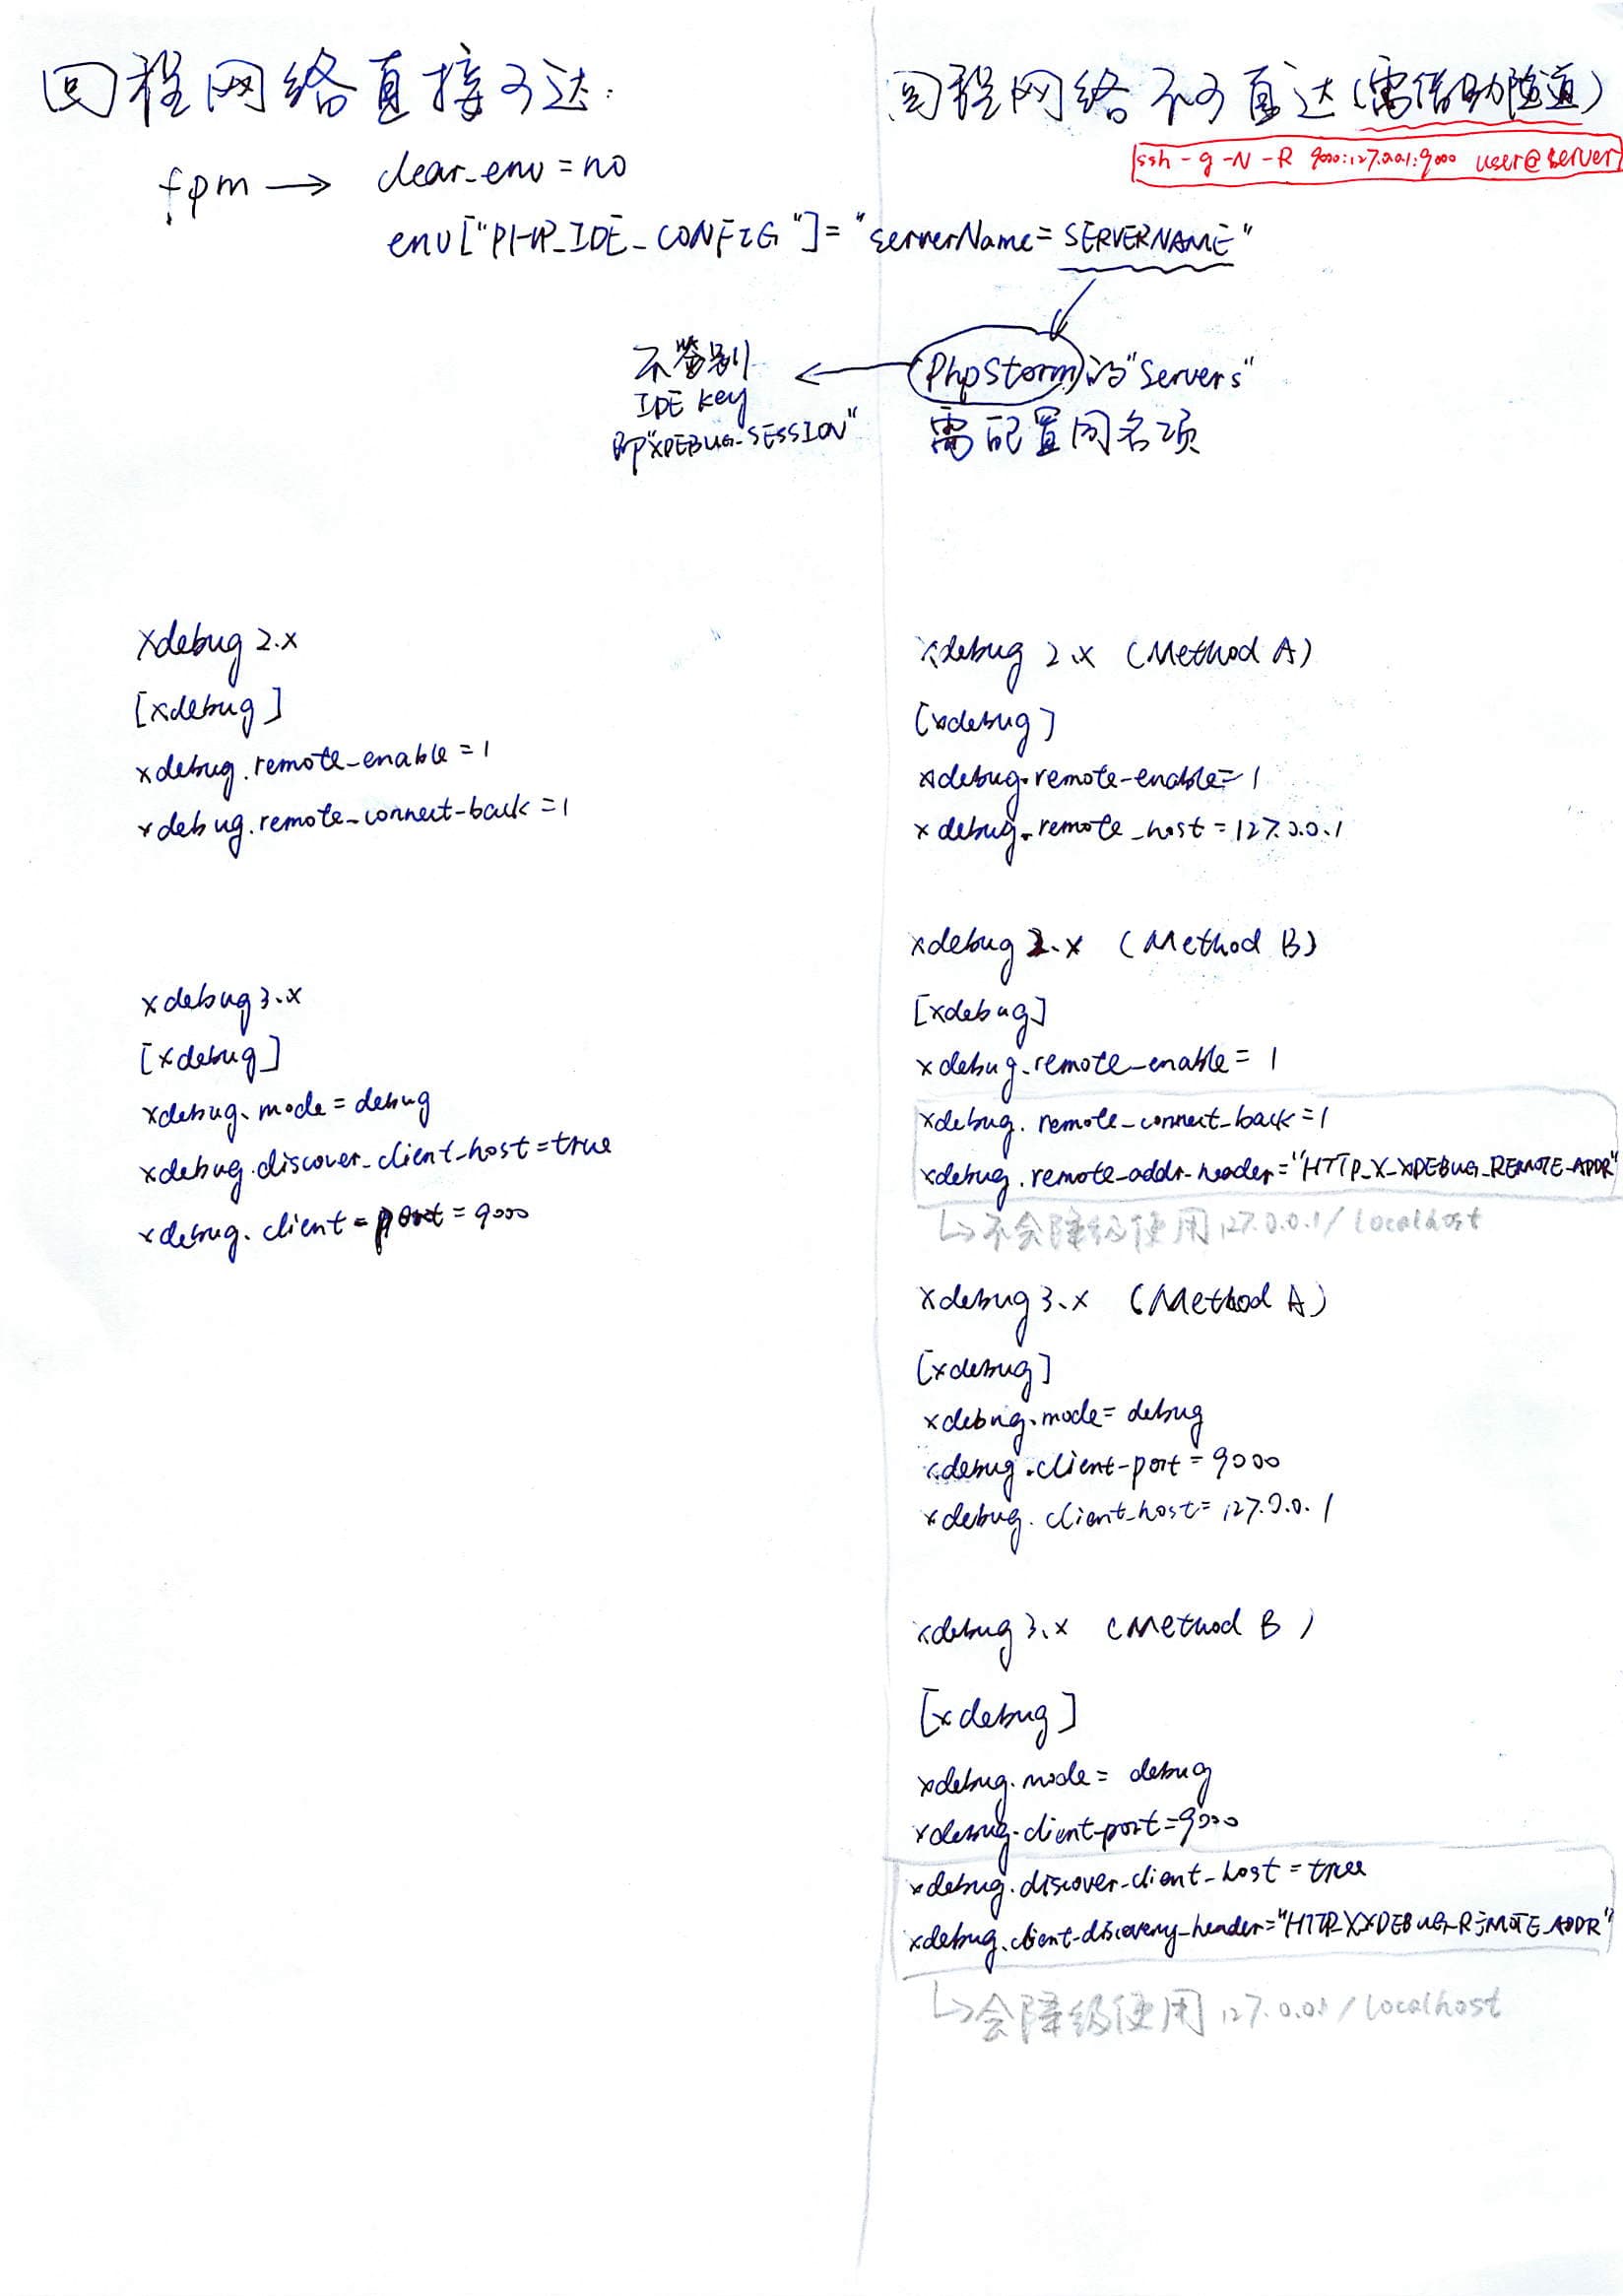 回程网络直接可达:
fpm → clear_env = no
env["PHP_IDE_CONFIG"]="serverName=SERVERNAME"
PhpStorm的"Servers"
需配置同名项
不鉴别
IDE key
即"XDEBUG_SESSION"
xdebug 2.x
[xdebug]
xdebug.remote_enable=1
xdebug.remote_connect_back=1
xdebug 3.x
[xdebug]
xdebug.mode=debug
xdebug.discover_client_host=true
xdebug.client_port=9000
回程网络不可直达(需借助隧道)
ssh -g -N -R 9000:127.0.0.1:9000 user@server
xdebug 2.x (Method A)
[xdebug]
xdebug.remote-enable=1
xdebug.remote_host=127.0.0.1
xdebug 2.x (Method B)
[xdebug]
xdebug.remote_enable=1
xdebug.remote_connect_back=1
xdebug.remote_addr_header="HTTP_X_XDEBUG_REMOTE_ADDR"
↳不会降级使用127.0.0.1/localhost
xdebug 3.x (Method A)
[xdebug]
xdebug.mode=debug
xdebug.client-port=9000
xdebug.client_host=127.0.0.1
xdebug 3.x (Method B)
[xdebug]
xdebug.mode=debug
xdebug.client-port=9000
xdebug.discover_client_host=true
xdebug.client-discovery_header="HTTP_X_XDEBUG_REMOTE_ADDR"
↳会降级使用127.0.0.1/localhost